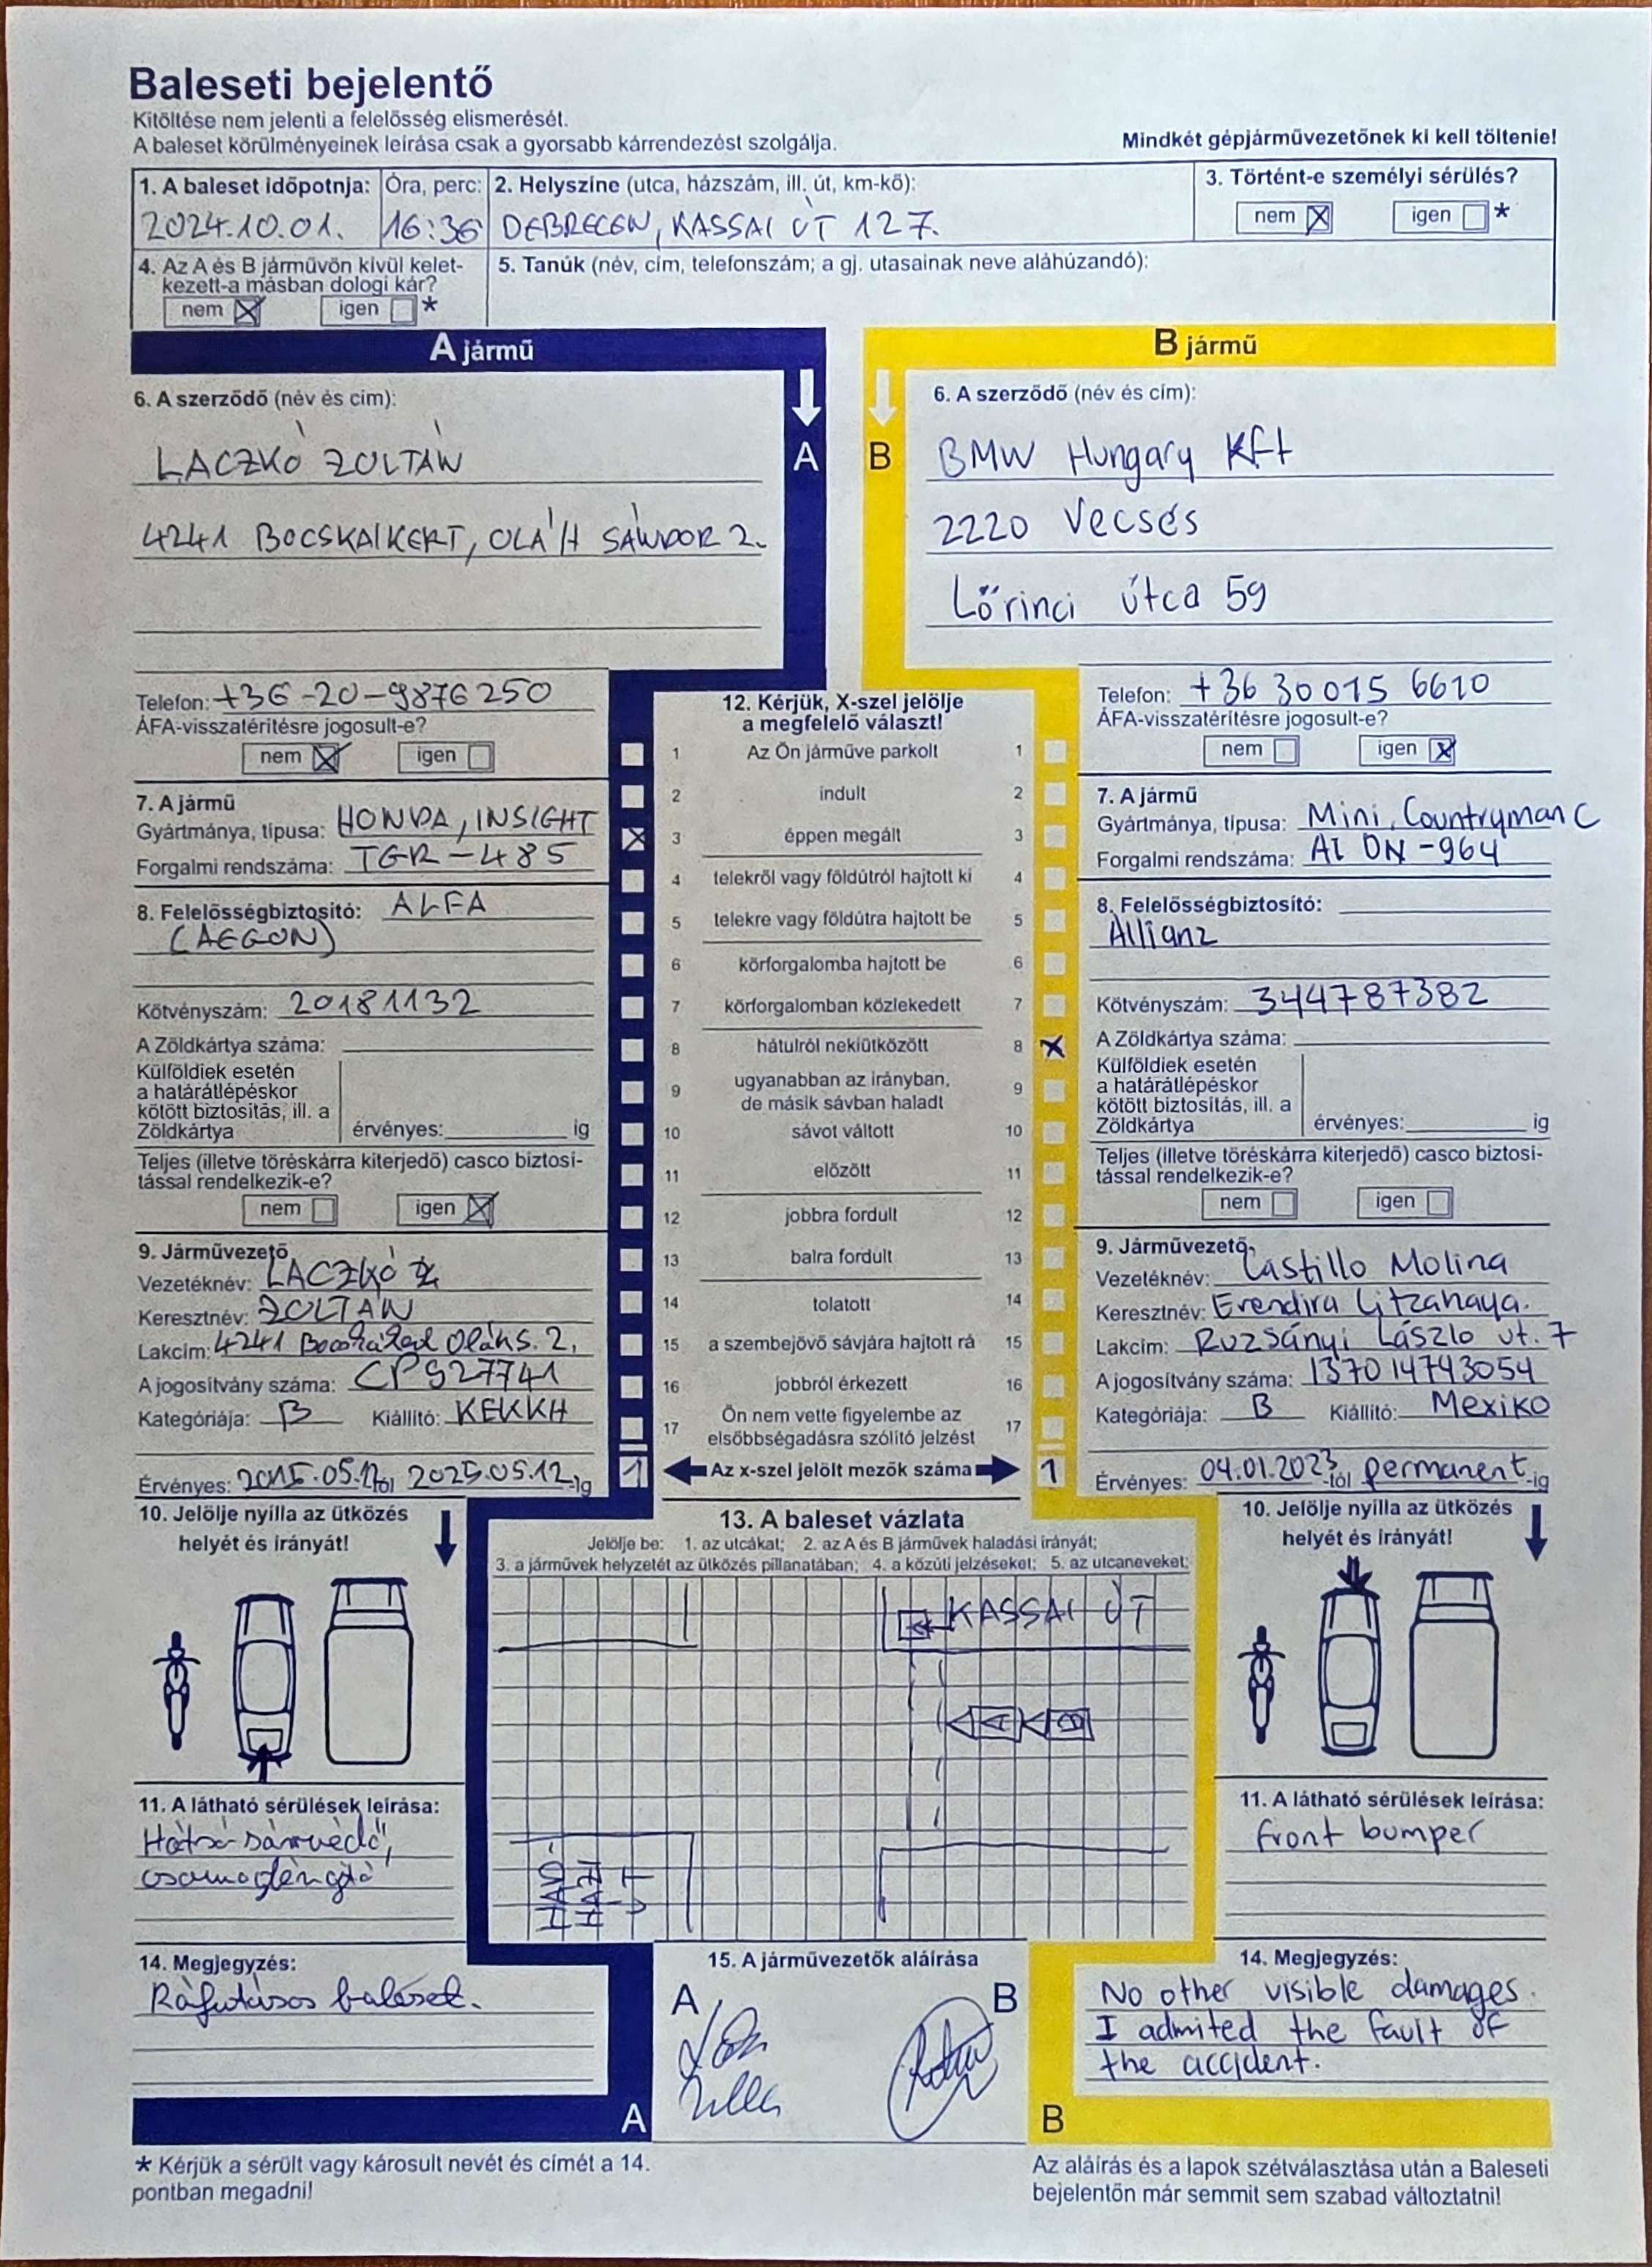 Baleseti bejelentő
Kitöltése nem jelenti a felelősség elismerését.
A baleset körülményeinek leírása csak a gyorsabb kárrendezést szolgálja.
Mindkét gépjárművezetőnek ki kell töltenie!
1. A baleset időpotnja: Óra, perc:
2024.10.01. 16:36
2. Helyszíne (utca, házszám, ill. út, km-kő):
DEBRECEN, KASSAI ÚT 127.
3. Történt-e személyi sérülés?
nem X igen *
4. Az A és B járművön kívül kelet-
kezett-a másban dologi kár?
nem X igen *
5. Tanúk (név, cím, telefonszám; a gj. utasainak neve aláhúzandó):
A jármű
6. A szerződő (név és cím):
LACZKÓ ZOLTÁN
4241 BOCSKAIKERT, OLÁH SÁNDOR 2.
Telefon: +36-20-9876250
ÁFA-visszatérítésre jogosult-e?
nem X igen
7. A jármű
Gyártmánya, típusa: HONDA, INSIGHT
Forgalmi rendszáma: TGR-485
8. Felelősségbiztosító: ALFA
(AEGON)
Kötvényszám: 20181132
A Zöldkártya száma:
Külföldiek esetén
a határátlépéskor
kötött biztosítás, ill. a
Zöldkártya érvényes: ig
Teljes (illetve töréskárra kiterjedő) casco biztosí-
tással rendelkezik-e?
nem igen X
9. Járművezető
Vezetéknév: LACZKÓ
Keresztnév: ZOLTÁN
Lakcím: 4241 Bocskaikert Oláh S. 2.
A jogosítvány száma: CP527741
Kategóriája: B Kiállító: KEKKH
Érvényes: 2015.05.12-től 2025.05.12.-ig
10. Jelölje nyílla az ütközés
helyét és írányát!
11. A látható sérülések leírása:
Hátsó sárvédő,
14. Megjegyzés:
Ráfutásos baleset.
A
B
12. Kérjük, X-szel jelölje
a megfelelő választ!
1 Az Ön járműve parkolt 1
2 indult 2
X 3 éppen megállt 3
4 telekről vagy földútról hajtott ki 4
5 telekre vagy földútra hajtott be 5
6 körforgalomba hajtott be 6
7 körforgalomban közlekedett 7
8 hátulról nekiütközött 8 X
9 ugyanabban az irányban, 9
de másik sávban haladt
10 sávot váltott 10
11 előzött 11
12 jobbra fordult 12
13 balra fordult 13
14 tolatott 14
15 a szembejövő sávjára hajtott rá 15
16 jobbról érkezett 16
17 Ön nem vette figyelembe az 17
elsőbbségadásra szólító jelzést
1 Az x-szel jelölt mezők száma 1
13. A baleset vázlata
Jelölje be: 1. az utcákat; 2. az A és B járművek haladási írányát;
3. a járművek helyzetét az ütközés pillanatában; 4. a közúti jelzéseket; 5. az utcaneveket;
KASSAI ÚT
A B
HAVO-
HÁZI
ÚT
15. A járművezetők aláírása
A B
B jármű
6. A szerződő (név és cím):
BMW Hungary Kft
2220 Vecsés
Lőrinci útca 59
Telefon: +36 30 015 6610
ÁFA-visszatérítésre jogosult-e?
nem igen X
7. A jármű
Gyártmánya, típusa: Mini, Countryman C
Forgalmi rendszáma: AI DN-964
8. Felelősségbiztosító:
Allianz
Kötvényszám: 344787382
A Zöldkártya száma:
Külföldiek esetén
a határátlépéskor
kötött biztosítás, ill. a
Zöldkártya érvényes: ig
Teljes (illetve töréskárra kiterjedő) casco biztosí-
tással rendelkezik-e?
nem igen
9. Járművezető
Vezetéknév: Castillo Molina
Keresztnév: Erendira Citzanaya.
Lakcím: Ruzsányi László ut. 7
A jogosítvány száma: 137014743054
Kategóriája: B Kiállító: Mexiko
Érvényes: 04.01.2023-tól permanent-ig
10. Jelölje nyílla az ütközés
helyét és írányát!
11. A látható sérülések leírása:
front bumper
14. Megjegyzés:
No other visible damages.
I admited the fault of
the accident.
A
B
* Kérjük a sérült vagy károsult nevét és címét a 14.
pontban megadni!
Az aláírás és a lapok szétválasztása után a Baleseti
bejelentőn már semmit sem szabad változtatni!